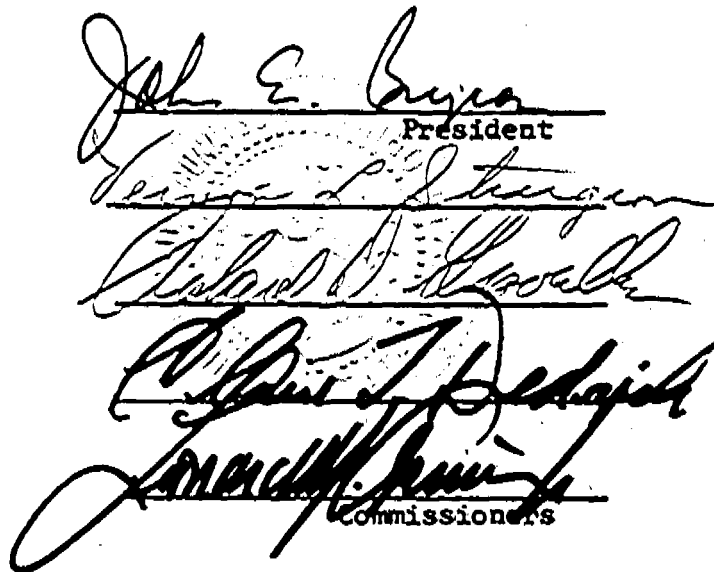 John E. Bryson
President
Vernon L. Sturgeon
Richard D. Gravelle
Claire T. Dedrick
Leonard M. Grimes Jr.
Commissioners